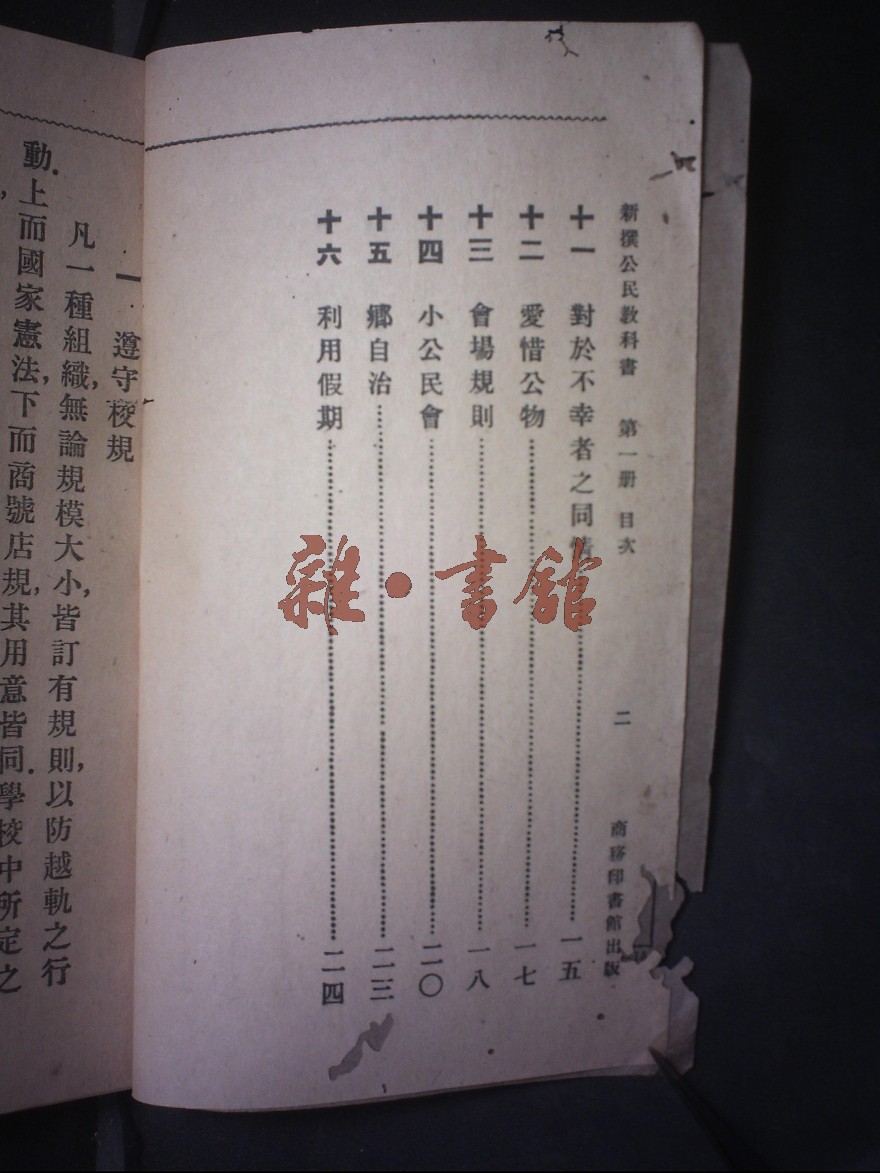 新撰公民教科書 第一册 目次 二 商務印書館出版
十一 對於不幸者之同情 一五
十二 愛惜公物 一七
十三 會場規則 一八
十四 小公民會 二〇
十五 鄉自治 二三
十六 利用假期 二四
雜·書館
一 遵守校規
凡一種組織,無論規模大小,皆訂有規則,以防越軌之行
動.上而國家憲法,下而商號店規,其用意皆同.學校中所定之